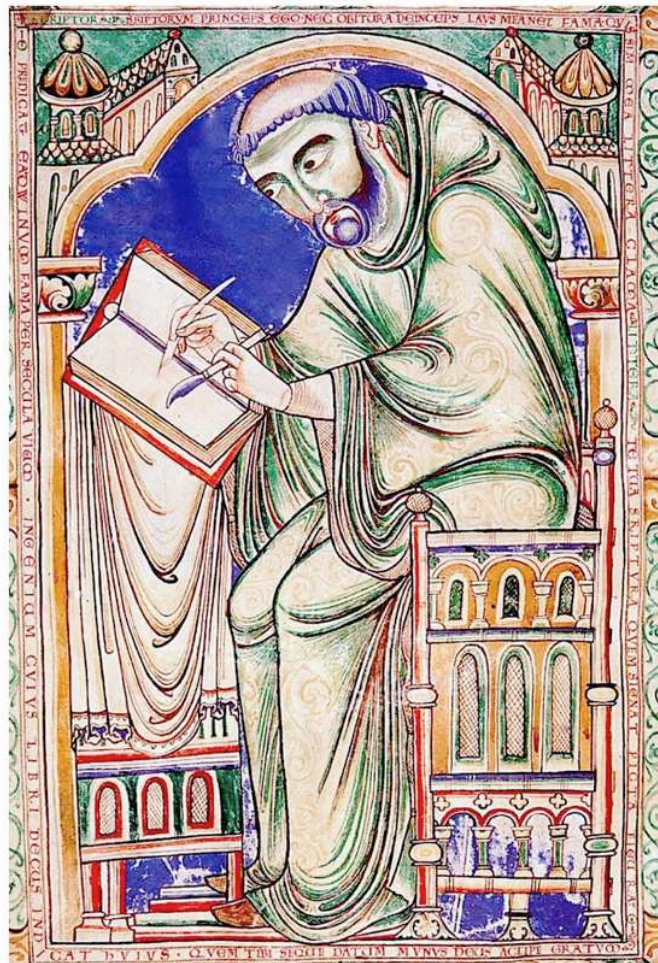 SRIPTORVM PRINCEPS EGO NEC OBITURA DEINCEPS LAVS MEA NEC FAMA QVIS
SIM MEA LITTERA CLAMA
TE TUA SRIPTVRA QVEM SIGNAT PICTA FIGURA
PREDICAT EADWINVM FAMA PER SECULA VIVUM · INGENIUM CVIVS LIBRI DECUS IND
ICAT HVIVS · QVEM TIBI SEQUE DATUM MVNUS DEUS ACCIPE GRATVM